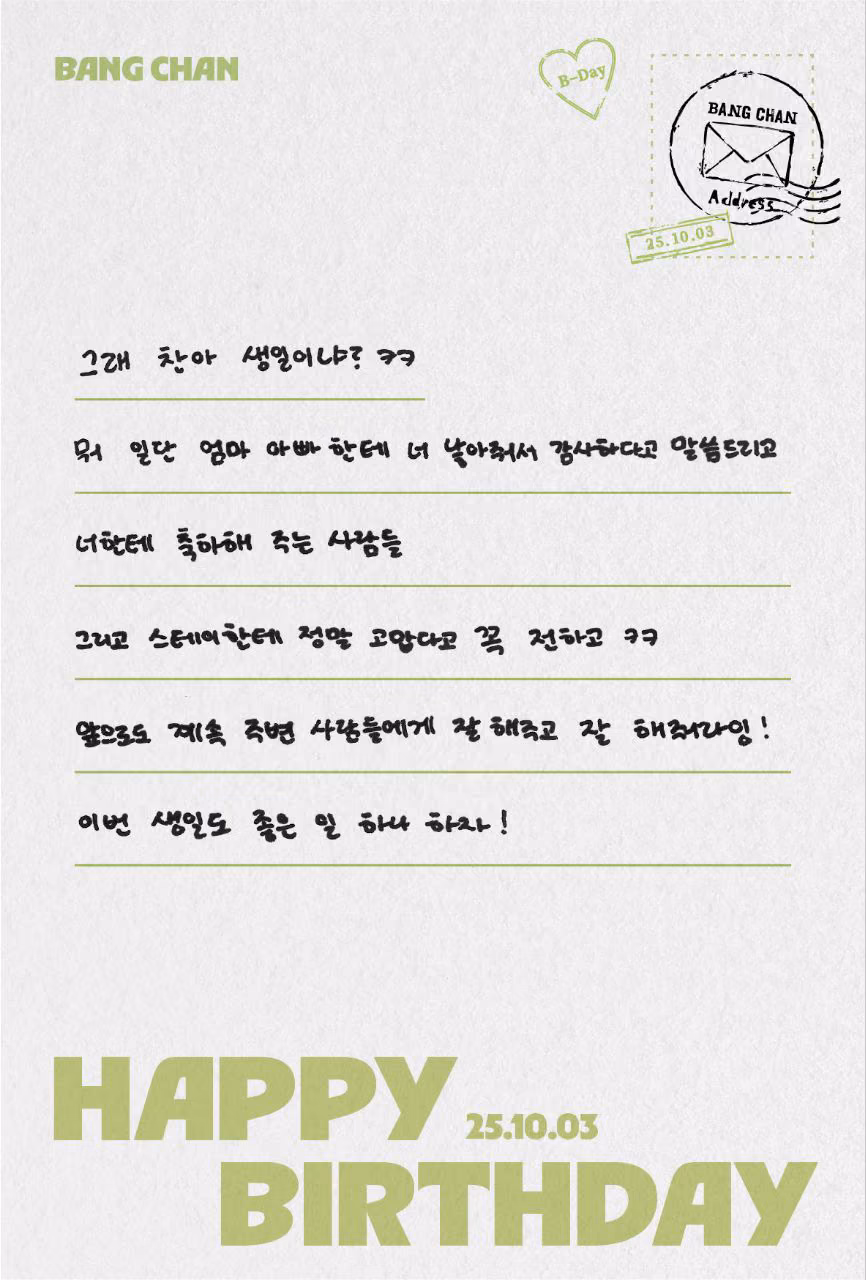 BANG CHAN
B-Day
BANG CHAN
Address
25.10.03
그래 찬아 생일이냐? ㅋㅋ
뭐 일단 엄마 아빠한테 너 낳아줘서 감사하다고 말씀드리고
너한테 축하해 주는 사람들
그리고 스테이한테 정말 고맙다고 꼭 전하고 ㅋㅋ
앞으로도 계속 주변 사람들에게 잘 해주고 잘 해줘라잉!
이번 생일도 좋은 일 하나 하자!
HAPPY
25.10.03
BIRTHDAY